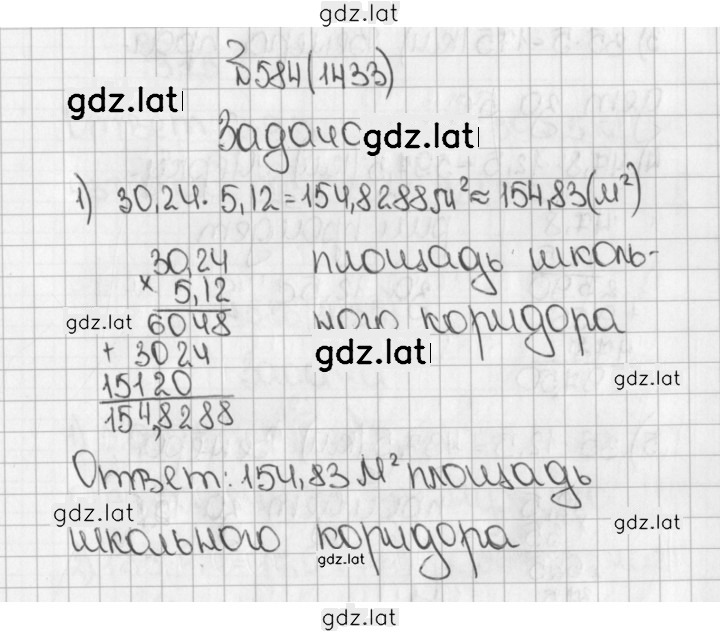 gdz.lat
№584(1433)
gdz.lat
Задача gdz.lat
1) 30,24 · 5,12 = 154,8288 м² ≈ 154,83 (м²)
30,24 площадь школь-
× 5,12
gdz.lat 6048 ного коридора
+ 3024 gdz.lat
15120 gdz.lat
154,8288
Ответ: 154,83 м² площадь
gdz.lat gdz.lat
школьного коридора
gdz.lat
gdz.lat